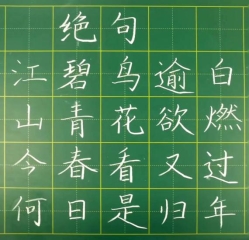 绝句
江碧鸟逾白
山青花欲燃
今春看又过
何日是归年